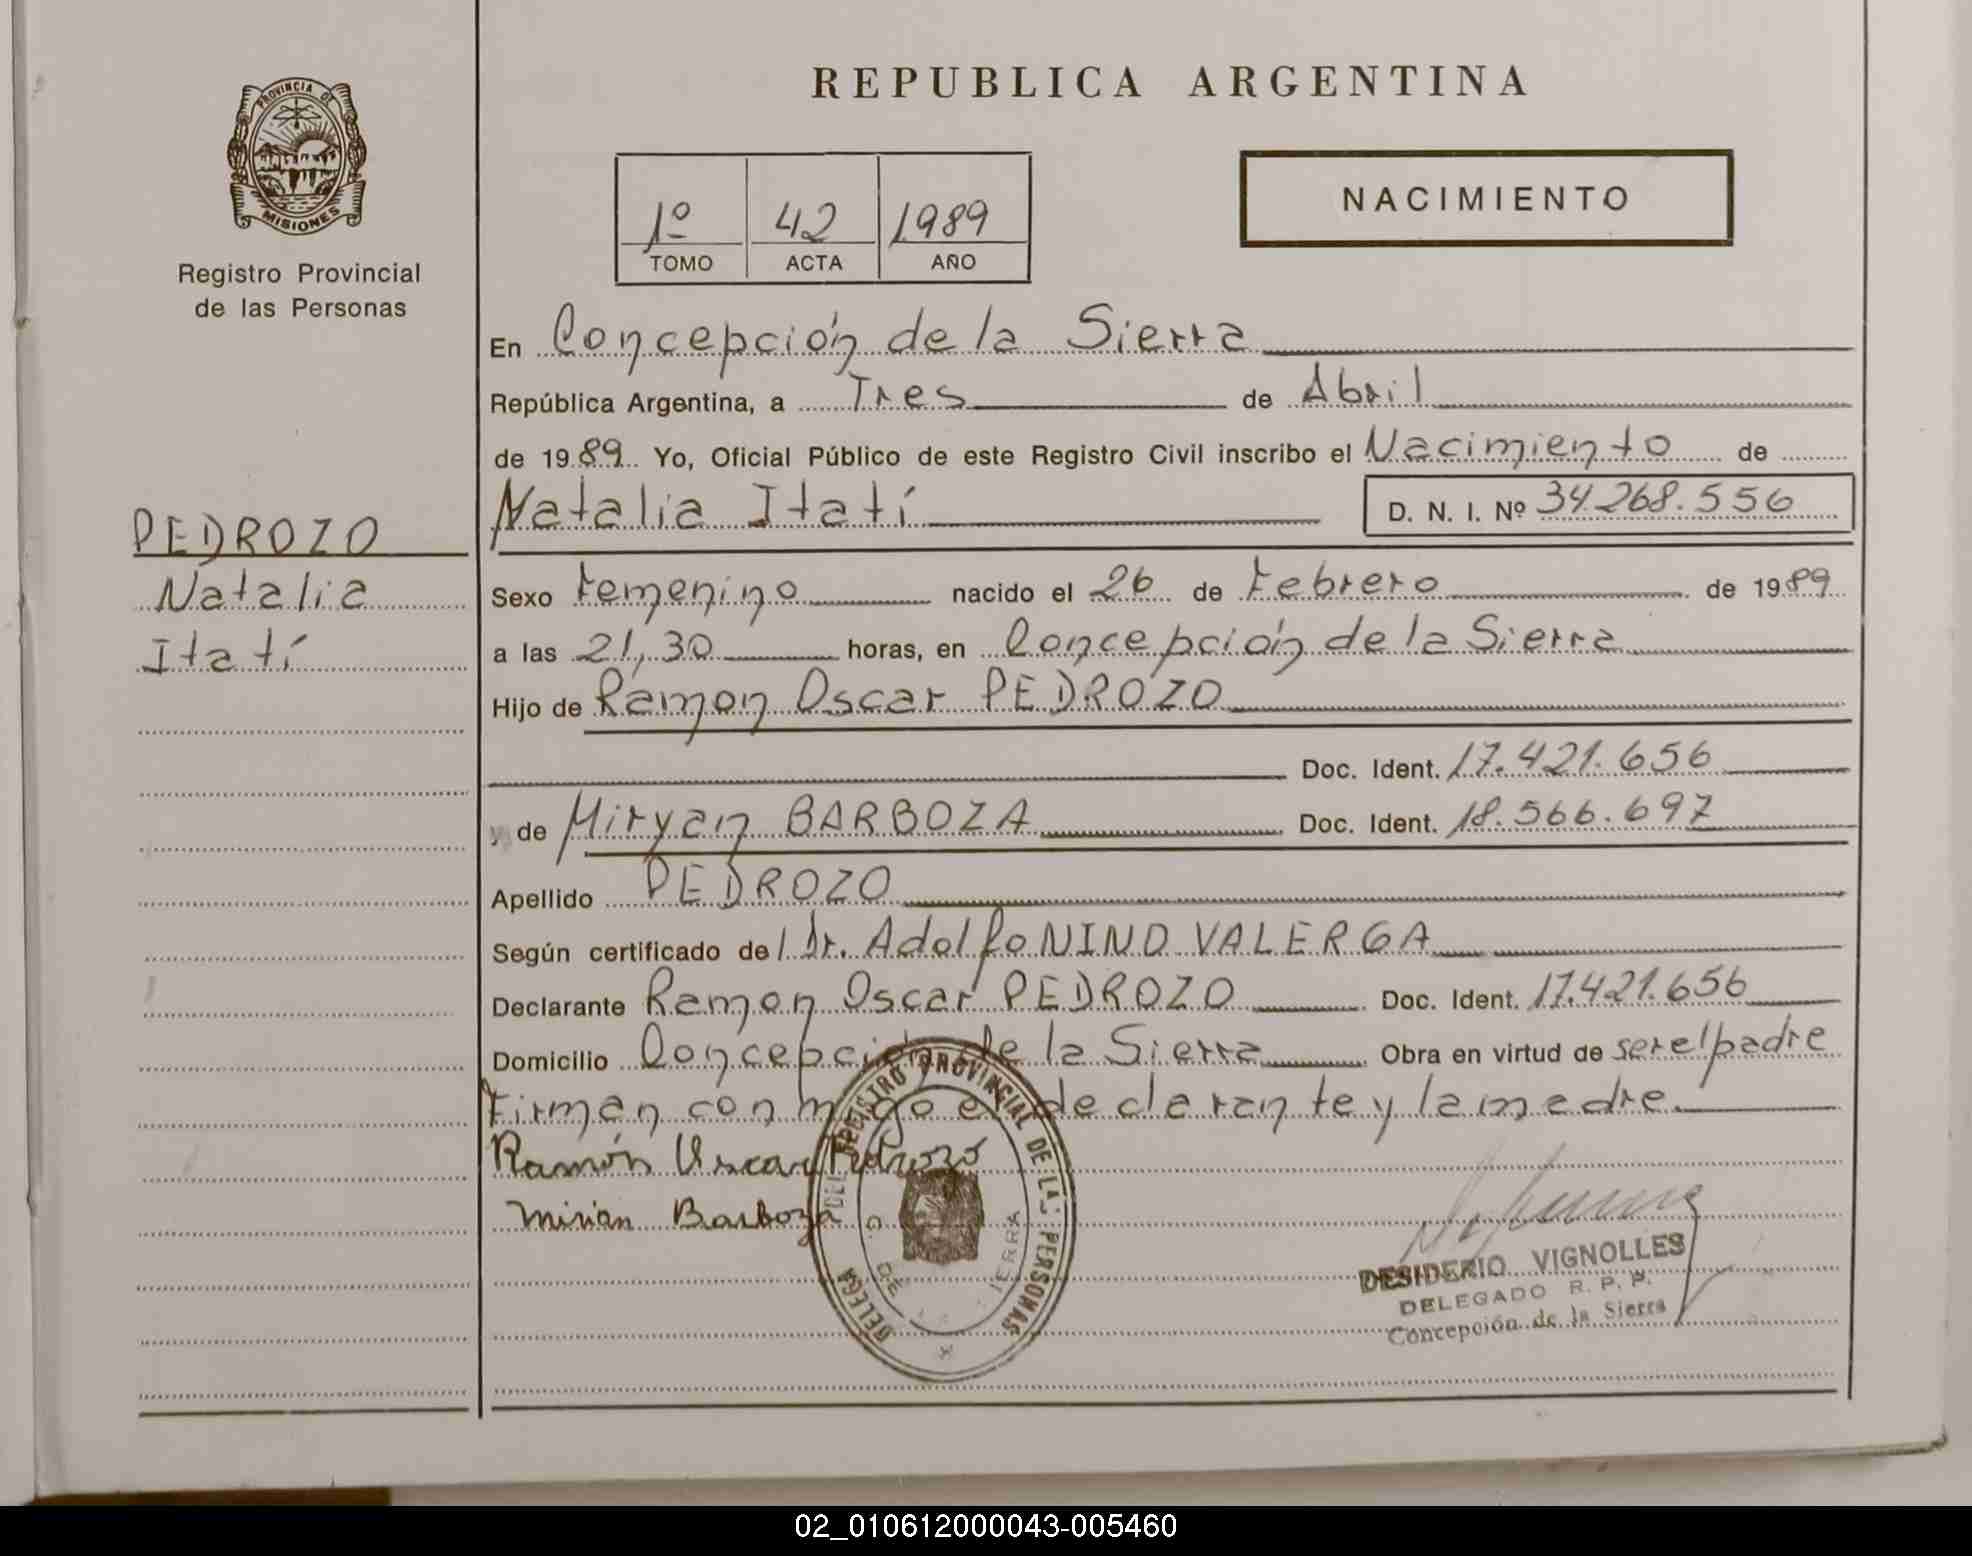 PROVINCIA DE
MISIONES
Registro Provincial
de las Personas
PEDROZO
Natalia
Itatí
REPUBLICA ARGENTINA
1º 42 1989
TOMO ACTA AÑO
NACIMIENTO
En Concepción de la Sierra
República Argentina, a Tres de Abril
de 1989 Yo, Oficial Público de este Registro Civil inscribo el Nacimiento de
Natalia Itatí D. N. I. Nº 34.268.556
Sexo Femenino nacido el 26 de Febrero de 1989
a las 21,30 horas, en Concepción de la Sierra
Hijo de Ramon Oscar PEDROZO
Doc. Ident. 17.421.656
y de Miryan BARBOZA Doc. Ident. 18.566.697
Apellido PEDROZO
Según certificado del Dr. Adolfo NINO VALERGA
Declarante Ramon Oscar PEDROZO Doc. Ident. 17.421.656
Domicilio Concepción de la Sierra Obra en virtud de ser el padre
Firman conmigo el declarante y la madre
Ramón Oscar Pedrozo
Mirian Barboza
DEL REGISTRO PROVINCIAL DE LAS PERSONAS
DELEGA
C. DE IERRA
DESIDERIO VIGNOLLES
DELEGADO R. P. P.
Concepción de la Sierra
02_010612000043-005460